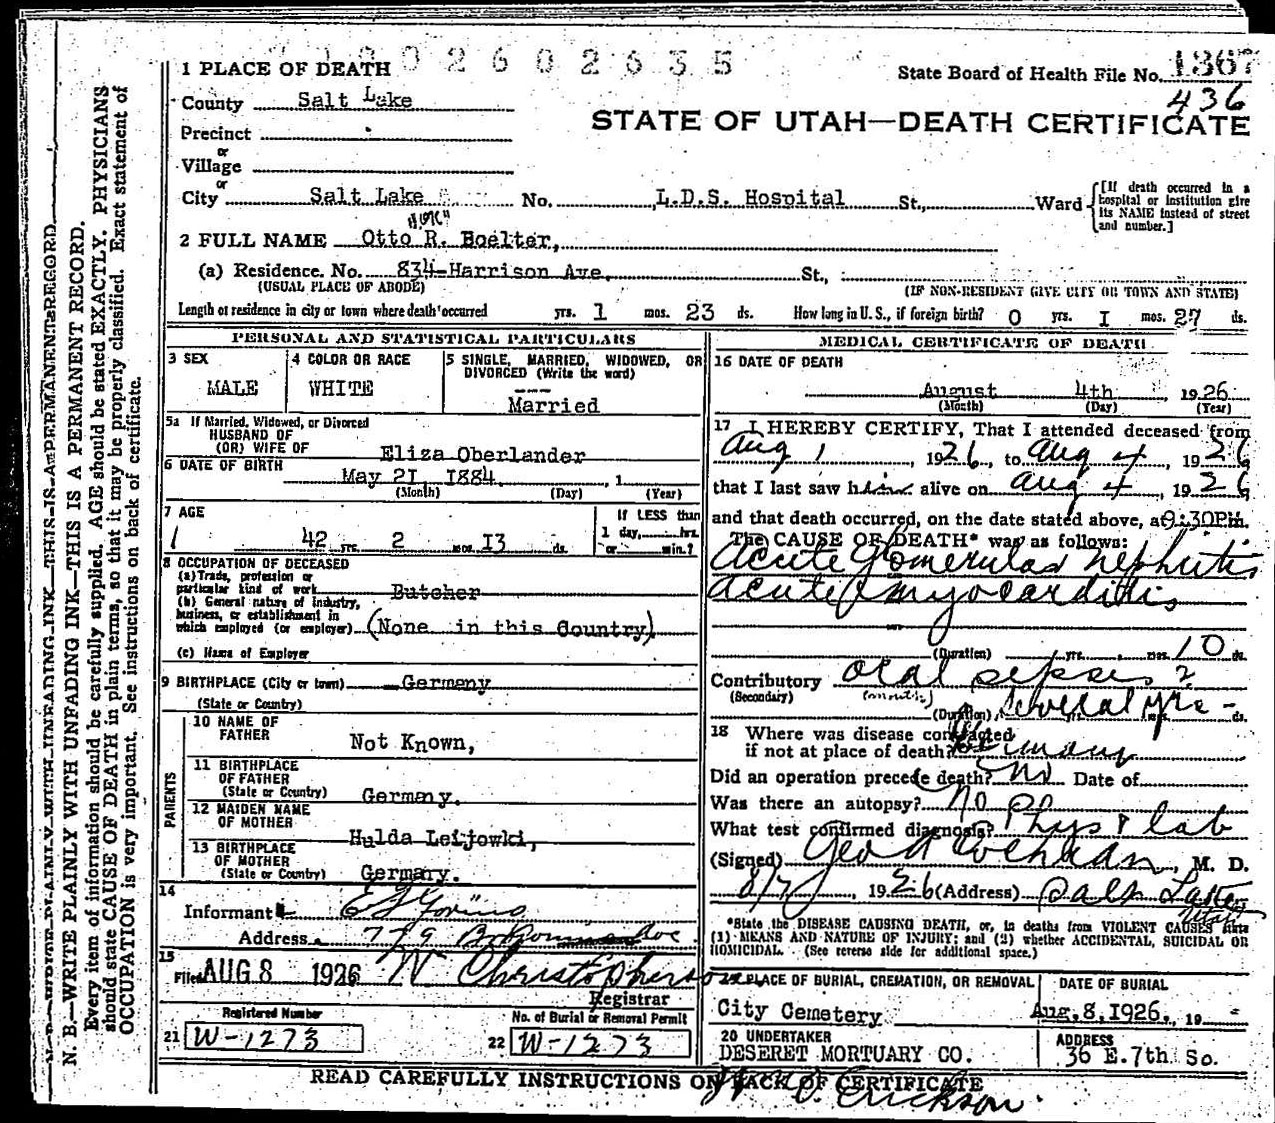 2602635
1 PLACE OF DEATH
State Board of Health File No. 1367
436
County Salt Lake
STATE OF UTAH—DEATH CERTIFICATE
Precinct
or
Village
or
City Salt Lake No. L.D.S. Hospital St., Ward [If death occurred in a hospital or institution give its NAME instead of street and number.]
2 FULL NAME Otto R. Boelter,
(a) Residence. No. 834-Harrison Ave. St.,
(USUAL PLACE OF ABODE) (IF NON-RESIDENT GIVE CITY OR TOWN AND STATE)
Length of residence in city or town where death occurred yrs. 1 mos. 23 ds. How long in U.S., if foreign birth? 0 yrs. I mos. 27 ds.
PERSONAL AND STATISTICAL PARTICULARS
3 SEX
MALE
4 COLOR OR RACE
WHITE
5 SINGLE, MARRIED, WIDOWED, OR
DIVORCED (Write the word)
Married
5a If Married, Widowed, or Divorced
HUSBAND OF
(OR) WIFE OF Eliza Oberlander
6 DATE OF BIRTH May 21 1884 , 1
(Month) (Day) (Year)
7 AGE
42 yrs. 2 mos. I3 ds.
If LESS than
1 day, hrs.
or min.?
8 OCCUPATION OF DECEASED
(a) Trade, profession or
particular kind of work Butcher
(b) General nature of industry,
business, or establishment in
which employed (or employer) (None in this Country)
(c) Name of Employer
9 BIRTHPLACE (City or town) Germany
(State or Country)
PARENTS
10 NAME OF
FATHER Not Known,
11 BIRTHPLACE
OF FATHER
(State or Country) Germany.
12 MAIDEN NAME
OF MOTHER Hulda Leijowki,
13 BIRTHPLACE
OF MOTHER
(State or Country) Germany.
14
Informant
Address 779 Ave
15
Filed AUG 8 1926 W Christopherson
Registrar
Registered Number
21 W-1273
No. of Burial or Removal Permit
22 W-1273
MEDICAL CERTIFICATE OF DEATH
16 DATE OF DEATH
August 4th , 1926
(Month) (Day) (Year)
17 I HEREBY CERTIFY, That I attended deceased from
Aug 1 , 1926, to Aug 4 , 1926
that I last saw him alive on Aug 4 , 1926
and that death occurred, on the date stated above, at 9:30Pm.
The CAUSE OF DEATH* was as follows:
Acute Glomerular nephritis
Acute myocarditis
(Duration) yrs. mos. 10 ds.
Contributory oral sepsis ?
(Secondary)
(Duration) several yrs - ds.
18 Where was disease contracted
if not at place of death? Germany
Did an operation precede death? No Date of
Was there an autopsy? no
What test confirmed diagnosis? Phys & lab
(Signed) Geo A Cochran, M. D.
8/7 , 1926 (Address) Salt Lake
Utah
*State the DISEASE CAUSING DEATH, or, in deaths from VIOLENT CAUSES state
(1) MEANS AND NATURE OF INJURY; and (2) whether ACCIDENTAL, SUICIDAL OR
HOMICIDAL. (See reverse side for additional space.)
PLACE OF BURIAL, CREMATION, OR REMOVAL
City Cemetery
DATE OF BURIAL
Aug, 8, 1926., 19
20 UNDERTAKER
DESERET MORTUARY CO.
ADDRESS
36 E. 7th So.
READ CAREFULLY INSTRUCTIONS ON BACK OF CERTIFICATE
O. Erickson.
N. B.—WRITE PLAINLY WITH UNFADING INK—THIS IS A PERMANENT RECORD.
Every item of information should be carefully supplied. AGE should be stated EXACTLY. PHYSICIANS
should state CAUSE OF DEATH in plain terms, so that it may be properly classified. Exact statement of
OCCUPATION is very important. See instructions on back of certificate.